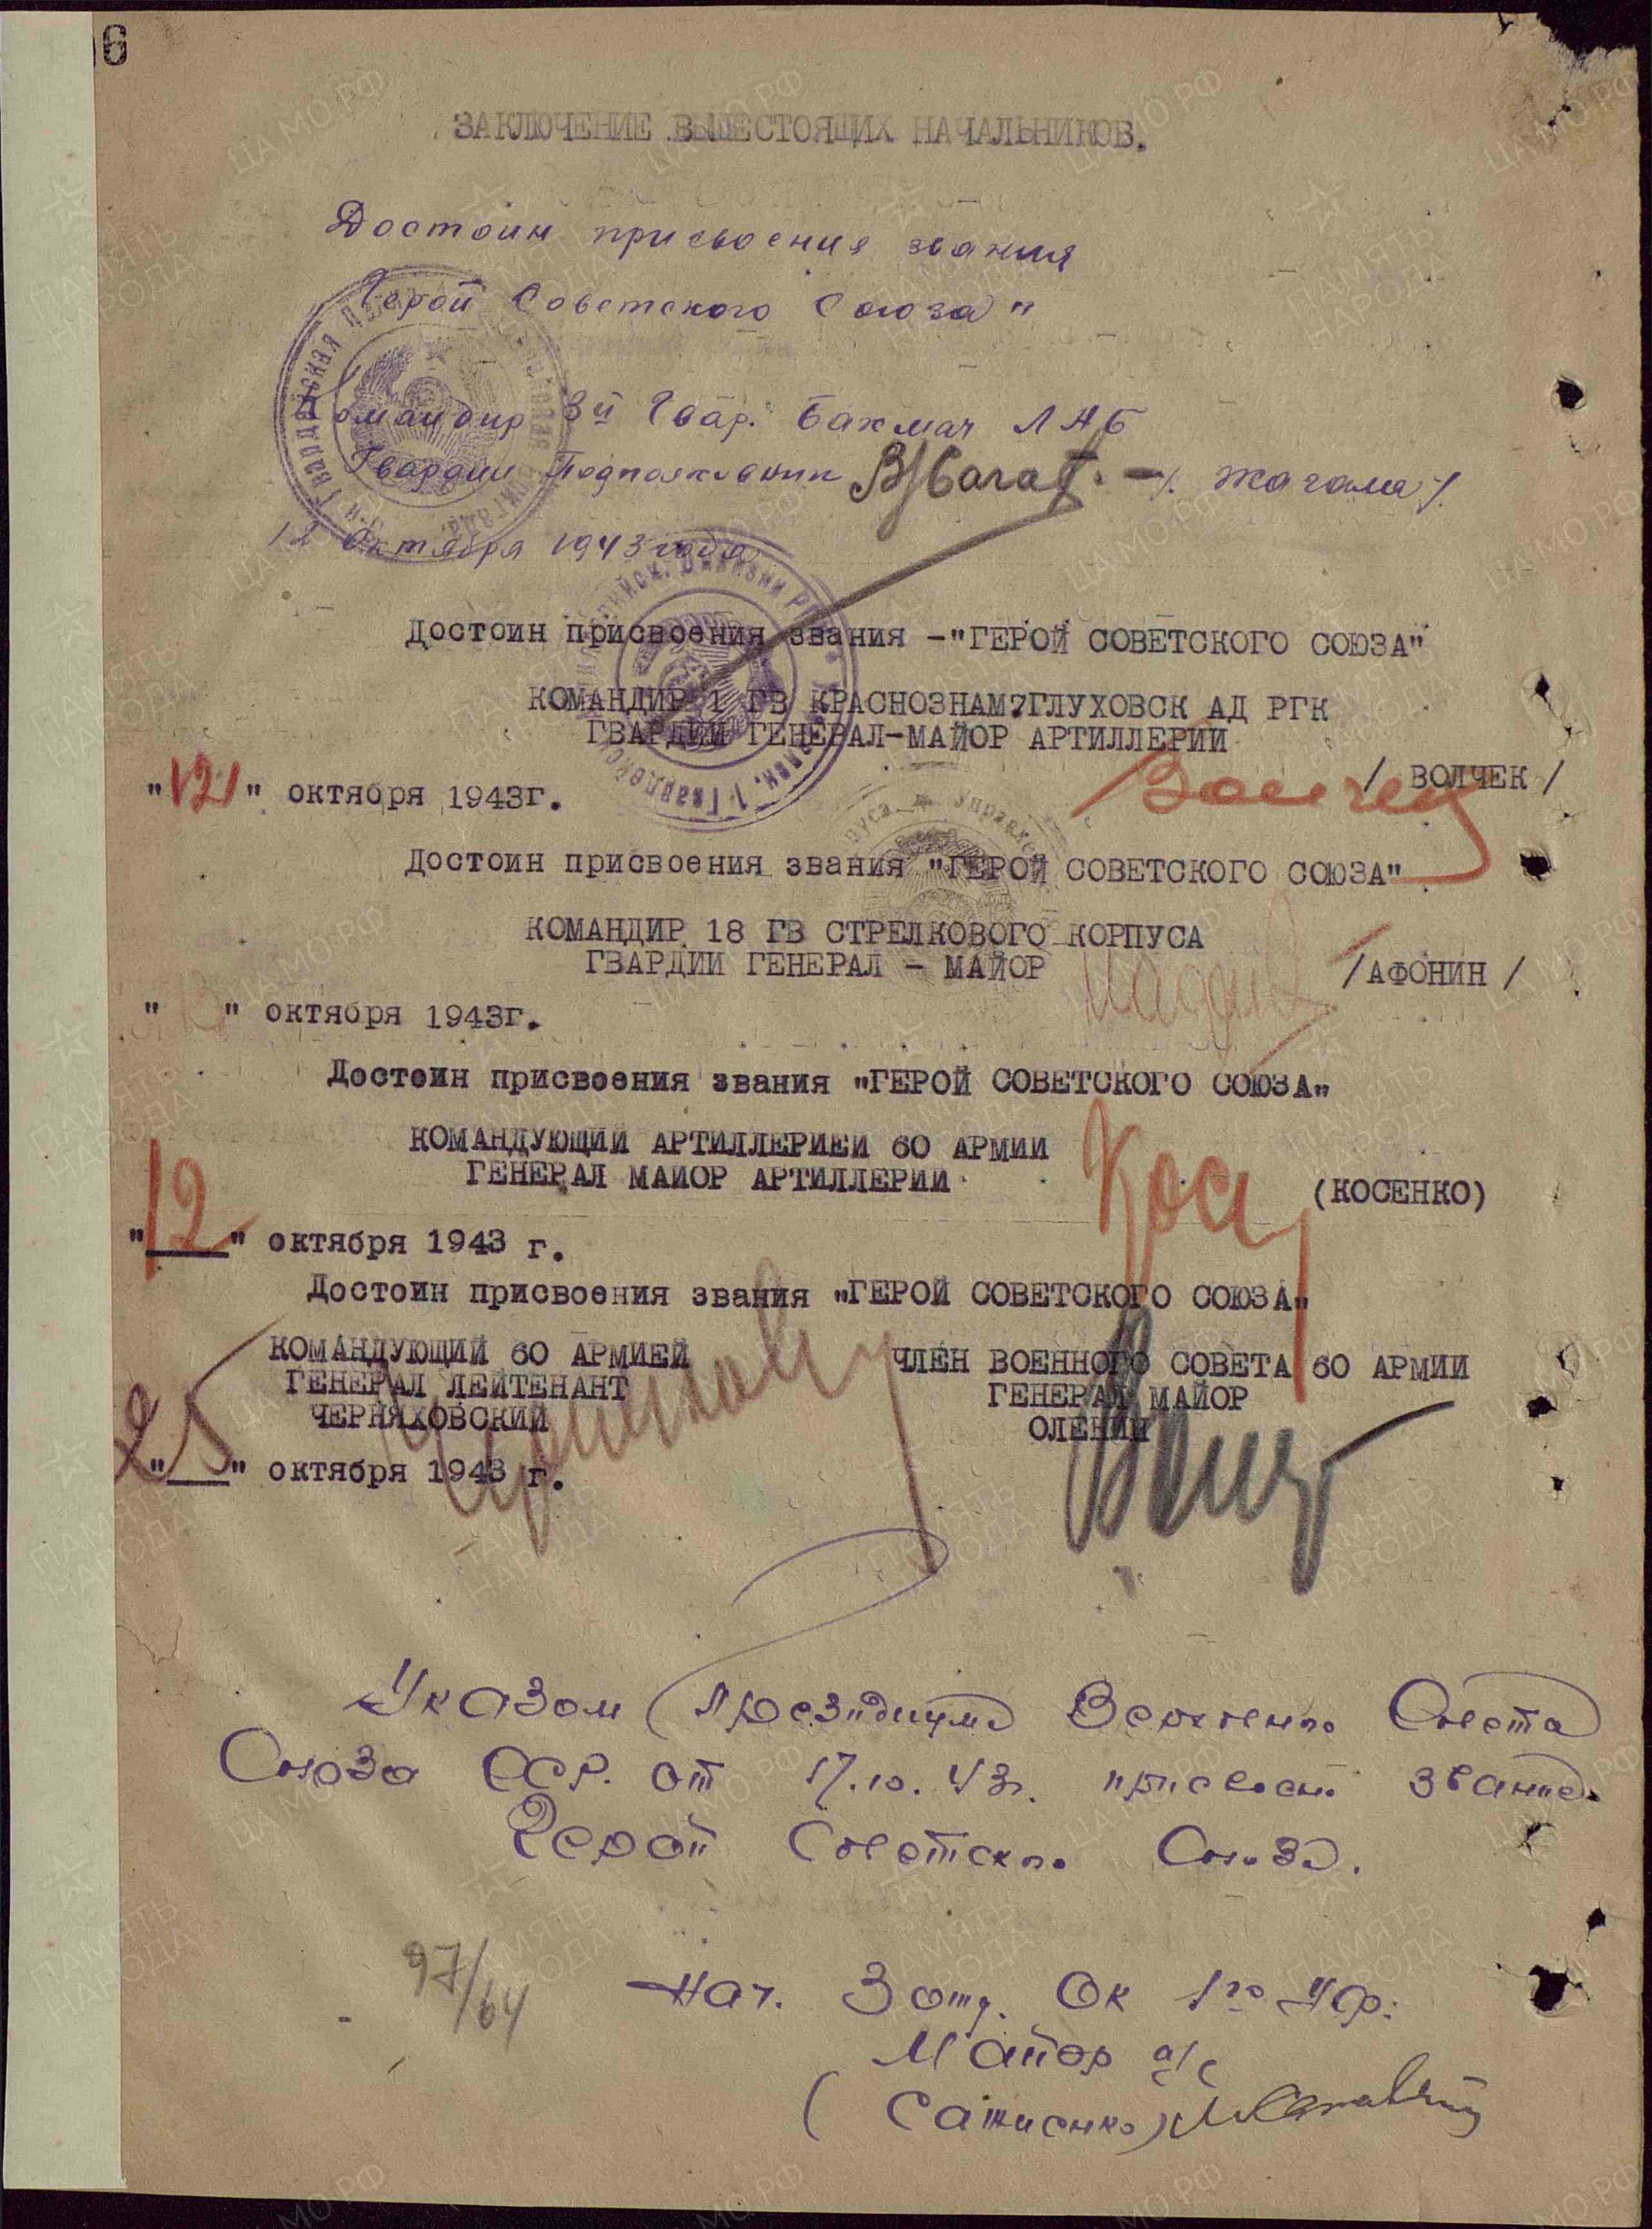 6
ЗАКЛЮЧЕНИЕ ВЫШЕСТОЯЩИХ НАЧАЛЬНИКОВ.
Достоин присвоения звания
Герой Советского Союза"
Командир 3й Гвар. Бахмач ЛАБ
Гвардии Подполковник /. Жагала /.
12 Октября 1943 года
Достоин присвоения звания -"ГЕРОЙ СОВЕТСКОГО СОЮЗА"
КОМАНДИР 1 ГВ КРАСНОЗНАМ?ГЛУХОВСК АД РГК
ГВАРДИИ ГЕНЕРАЛ-МАЙОР АРТИЛЛЕРИИ
/ ВОЛЧЕК /
"12" октября 1943г.
Достоин присвоения звания "ГЕРОЙ СОВЕТСКОГО СОЮЗА"
КОМАНДИР 18 ГВ СТРЕЛКОВОГО КОРПУСА
ГВАРДИИ ГЕНЕРАЛ - МАЙОР /АФОНИН /
" " октября 1943г.
Достоин присвоения звания "ГЕРОЙ СОВЕТСКОГО СОЮЗА"
КОМАНДУЮЩИЙ АРТИЛЛЕРИЕЙ 60 АРМИИ
ГЕНЕРАЛ МАЙОР АРТИЛЛЕРИИ (КОСЕНКО)
"12" октября 1943 г.
Достоин присвоения звания "ГЕРОЙ СОВЕТСКОГО СОЮЗА"
КОМАНДУЮЩИЙ 60 АРМИЕЙ ЧЛЕН ВОЕННОГО СОВЕТА 60 АРМИИ
ГЕНЕРАЛ ЛЕЙТЕНАНТ ГЕНЕРАЛ МАЙОР
ЧЕРНЯХОВСКИЙ ОЛЕНИН
"15" октября 1943 г.
Указом Президиума Верховного Совета
Союза ССР. от 17.10.43г. присвоено звание
Герой Советского Союза.
97/64
Нач. 3 отд. ОК 1го Уф.
Майор а/с